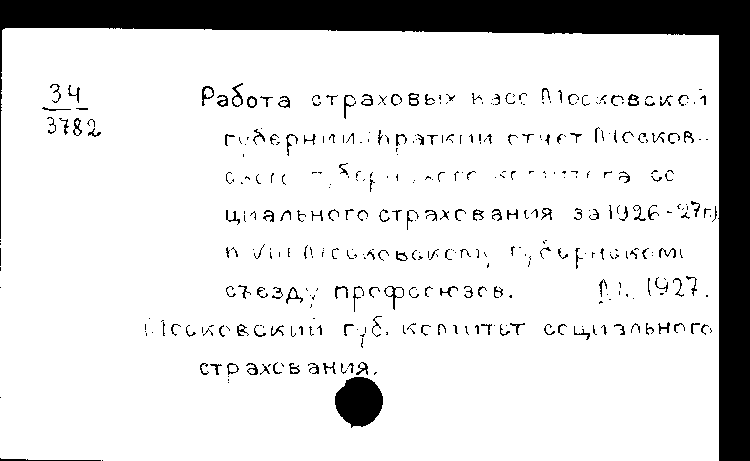 34
3782
Работа страховых касс Московской
губернии. Краткий отчет Москов-
ского губернского комитета со
циального страхования за 1926-27 г.
к VIII Московскому губернском
съезду профсоюзов. М., 1927.
Московский губ. комитет социального
страхования.